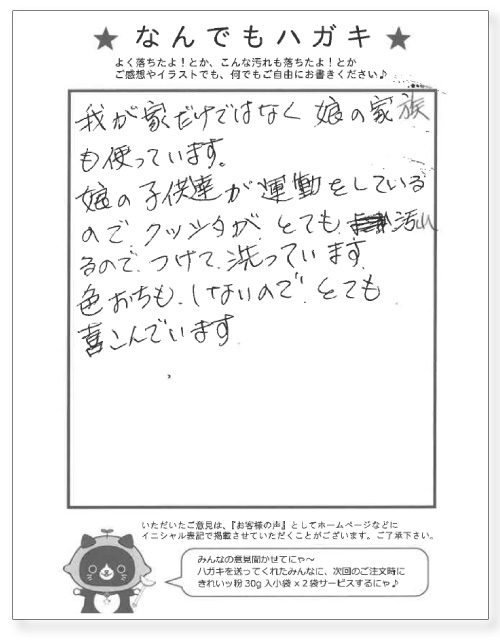 ★なんでもハガキ★
よく落ちたよ！とか、こんな汚れも落ちたよ！とか
ご感想やイラストでも、何でもご自由にお書きください♪
我が家だけではなく 娘の家族
も使っています。
娘の子供達が運動をしている
ので、クッシタが、とても 汚れ
るので、つけて、洗っています
色おちも、しないので、とても
喜こんでいます
いただいたご意見は、『お客様の声』としてホームページなどに
イニシャル表記で掲載させていただくことがございます。ご了承下さい。
みんなの意見聞かせてにゃ～
ハガキを送ってくれたみんなに、次回のご注文時に
きれいッ粉 30g 入小袋 ×２袋サービスするにゃ♪